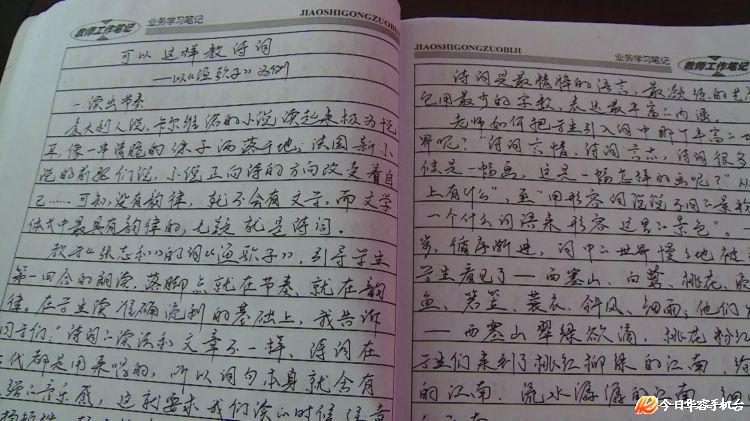 教师工作笔记 业务学习笔记 JIAOSHIGONGZUOBIJI
可以这样教诗词
——以《渔歌子》为例
一 读出节奏
意大利人说,卡尔维诺的小说读起来极为悦
耳,像一串清脆的珠子洒落于地;法国新小
说的前辈们说,小说正向诗的方向改变着自
己……可知,没有韵律,就不会有文学。而文学
体式中最具有韵律的,无疑就是诗词。
教张志和的词《渔歌子》,引导学生
第一回合的朗读,落脚点就在节奏、就在韵
律。在学生读准确流利的基础上,我告诉
同学们:"诗词的读法和文章不一样,诗词在
代都是用来唱的,所以词句本身就会有
强的音乐感,这就要求我们读的时候注意
JIAOSHIGONGZUOBIJI 业务学习笔记 教师工作笔记
诗词是最精粹的语言,最凝练的
它用最少的字数,表达最丰富的内
老师如何把学生引入词中那个丰富的世
界呢?"诗词言情,诗词言志,诗词很多
但是一幅画,这是一幅怎样的画呢?"从
上有什么",至"用形容词说说
一个什么词语来形容这里的景色"。
步,循序渐进,词中的世界慢慢地被
学生看见了——西塞山、白鹭、桃花、
鱼、箬笠、蓑衣、斜风、细雨;他们
——西塞山翠绿欲滴,桃花粉红
学生们来到了桃红柳绿的江南,
的江南,流水潺潺的江南,细
今日华容手机台